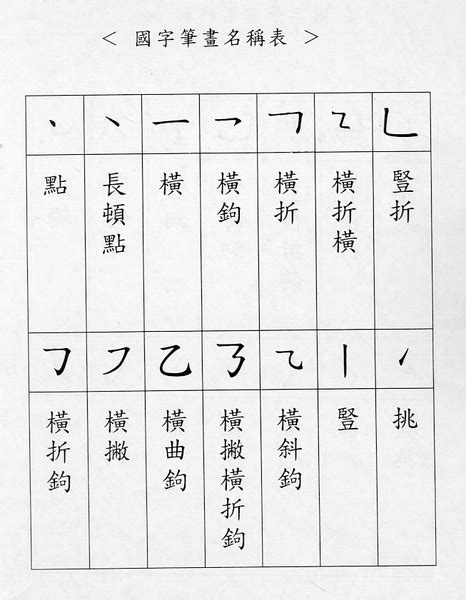 < 國字筆畫名稱表 >
丶 ㇔ 一 ㇖ ㇕ ㇅ ㇄
點
長頓點
橫
橫鉤
橫折
橫折橫
豎折
㇆ ㇇ ㇠ ㇌ ㇈ 丨 ㇀
橫折鉤
橫撇
橫曲鉤
橫撇橫折鉤
橫斜鉤
豎
挑